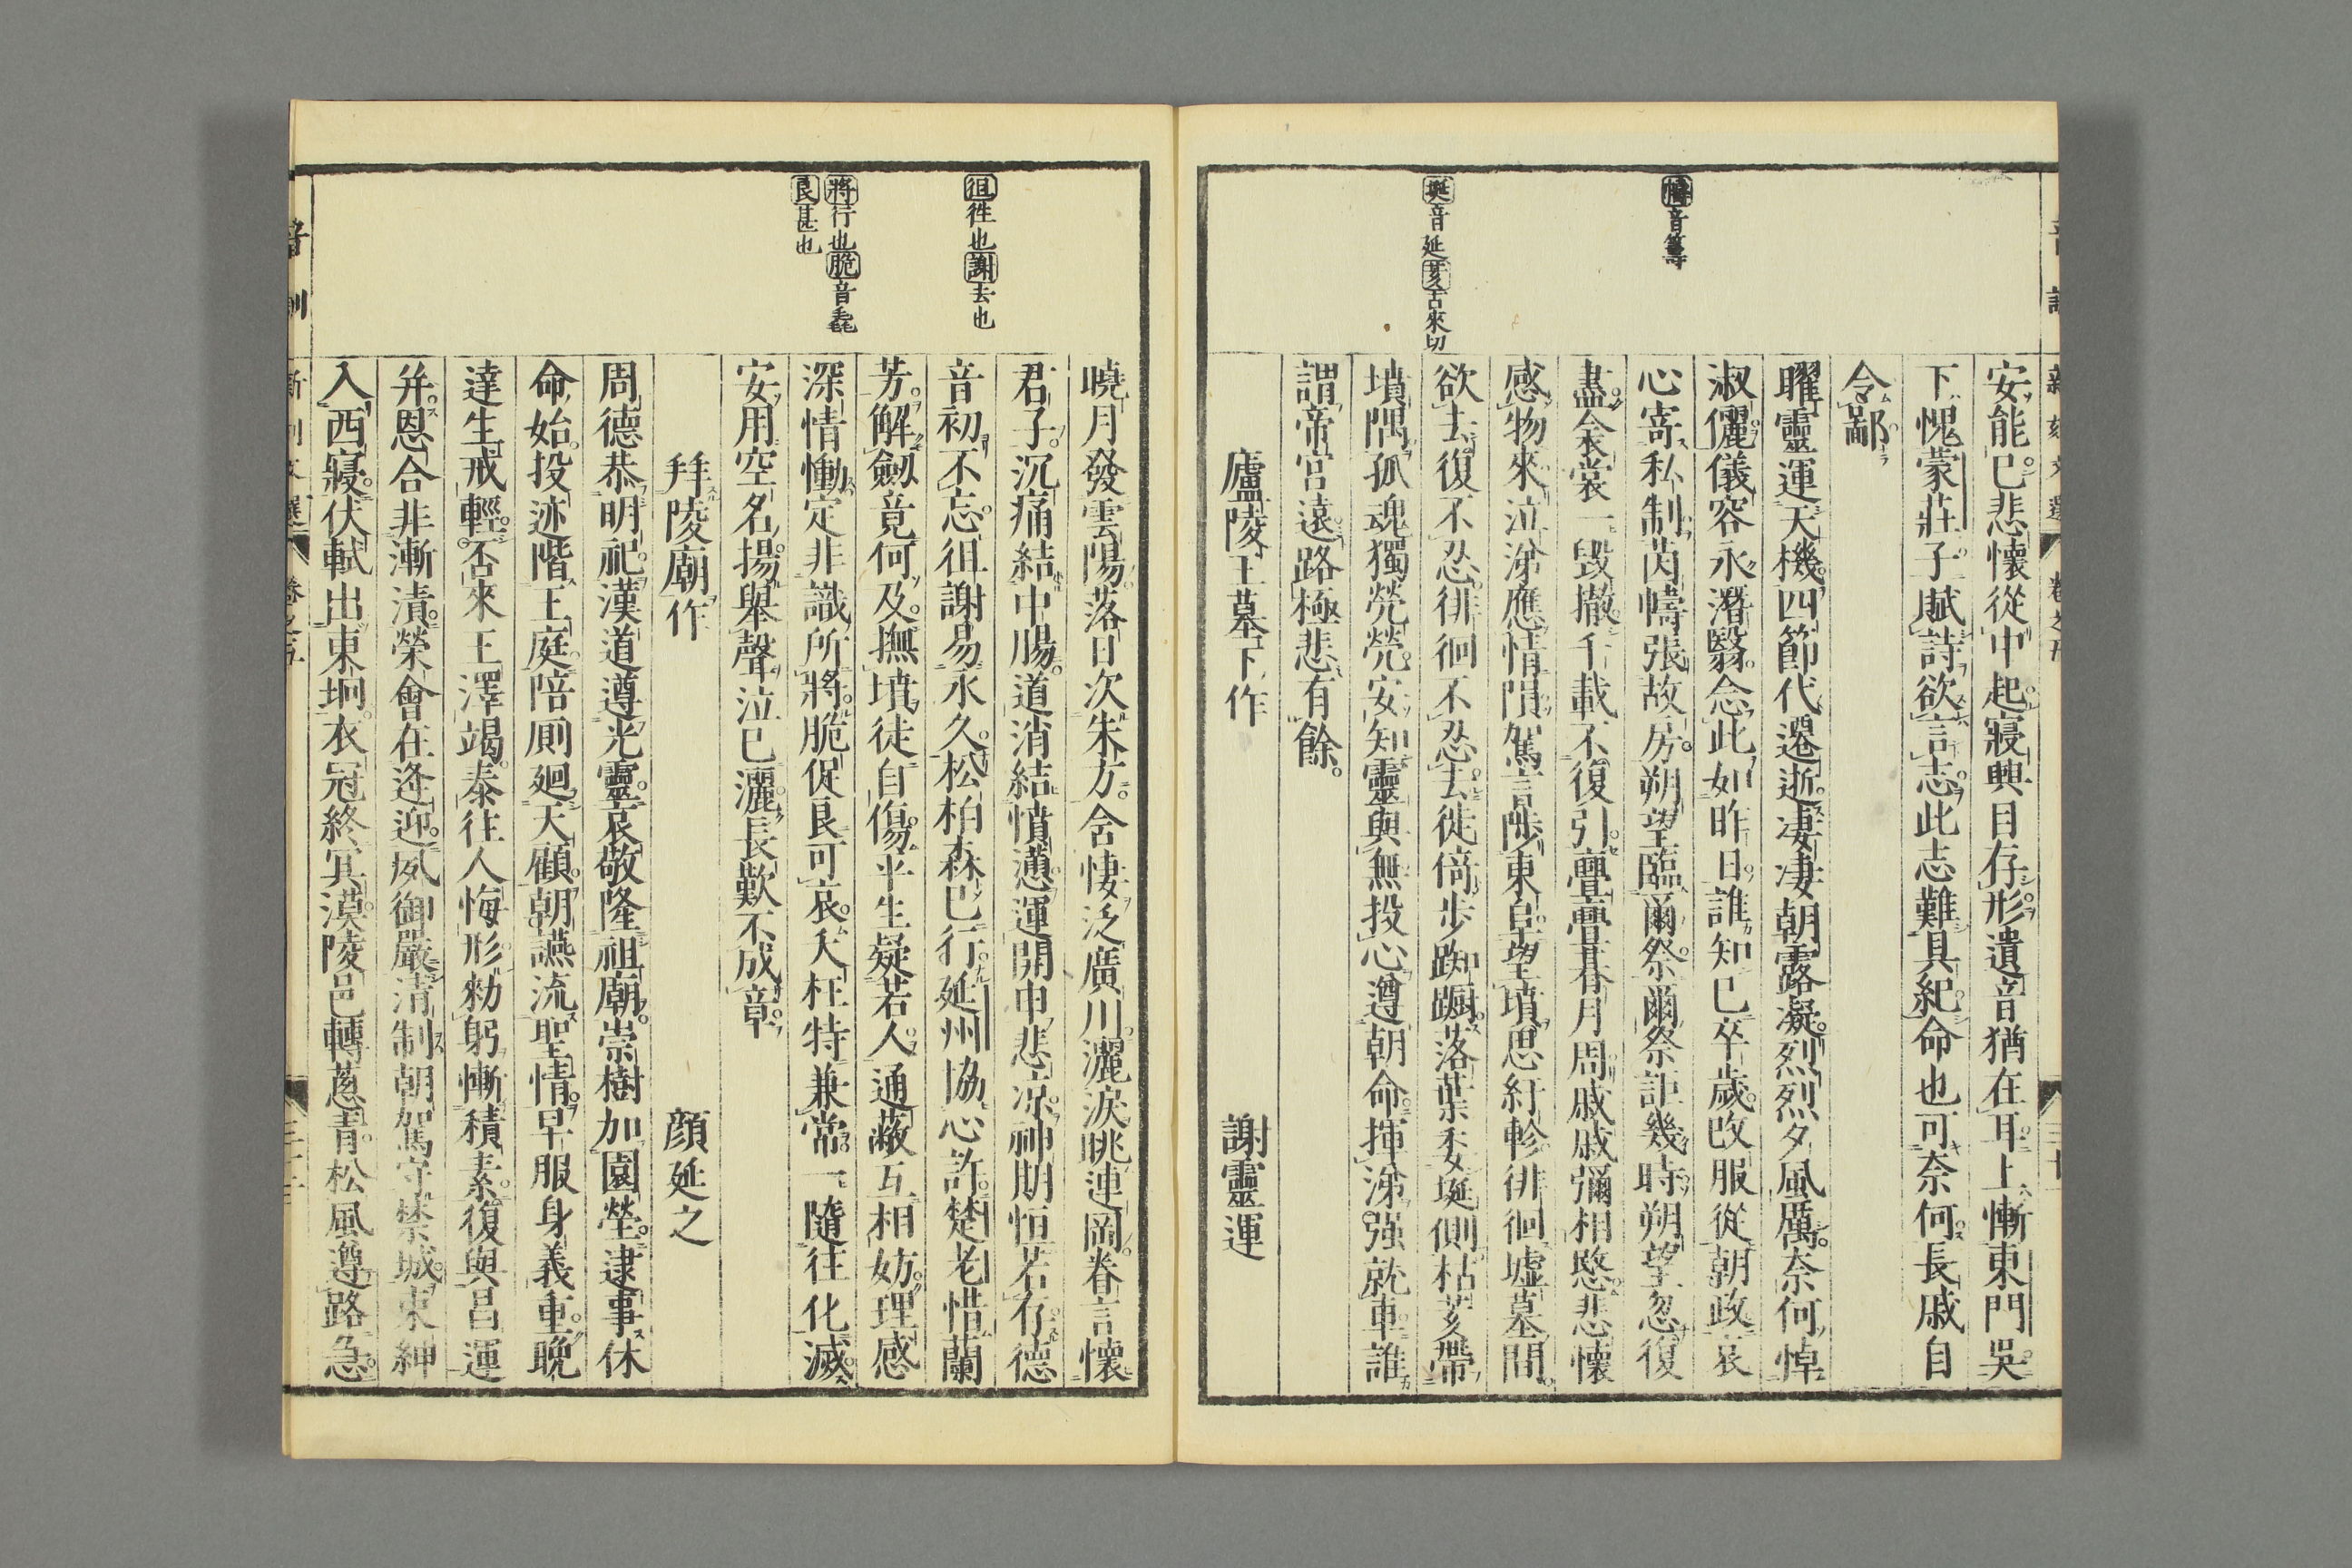 安能已悲懷從中起寢興目存形遺音猶在耳上慚東門吳
下愧蒙莊子賦詩欲言志此志難具紀命也可奈何長戚自
令鄙
曜靈運天機四節代遷逝凄凄朝露凝烈烈夕風厲奈何悼
淑儷儀容永潛翳念此如昨日誰知已卒歲改服從朝政哀
心寄私制茵幬張故房朔望臨爾祭爾祭詎幾時朔望忽復
盡衾裳一毀撤千載不復引亹亹朞月周戚戚彌相愍悲懷
感物來泣涕應情隕駕言陟東阜望墳思紆軫徘徊墟墓間
欲去復不忍徘徊不忍去徙倚步踟蹰落葉委埏側枯荄帶
墳隅孤魂獨煢煢安知靈與無投心遵朝命揮涕强就車誰
謂帝宮遠路極悲有餘
廬陵王墓下作 謝靈運
幬音籌
埏音延荄古來切
曉月發雲陽落日次朱方含悽泛廣川灑淚眺連岡眷言懷
君子沉痛結中腸道消結憤懣運開申悲凉神期恒若存德
音初不忘徂謝易永久松柏森已行延州協心許楚老惜蘭
芳解劔竟何及撫墳徒自傷平生疑若人通蔽互相妨理感
深情慟定非識所將脆促良可哀夭枉特兼常一隨往化滅
安用空名揚舉聲泣已灑長歎不成章
拜陵廟作 顔延之
周德恭明祀漢道遵光靈哀敬隆祖廟崇樹加園塋逮事休
命始投迹階王庭陪厠廻天顧朝讌流聖情早服身義重晚
達生戒輕否來王澤竭泰往人悔形勑躬慚積素復與昌運
并恩合非漸漬榮會在逢迎夙御嚴清制朝駕守禁城束紳
入西寢伏軾出東坰衣冠終冥漠陵邑轉葱青松風遵路急
徂徃也謝去也
將行也脆音毳
良甚也